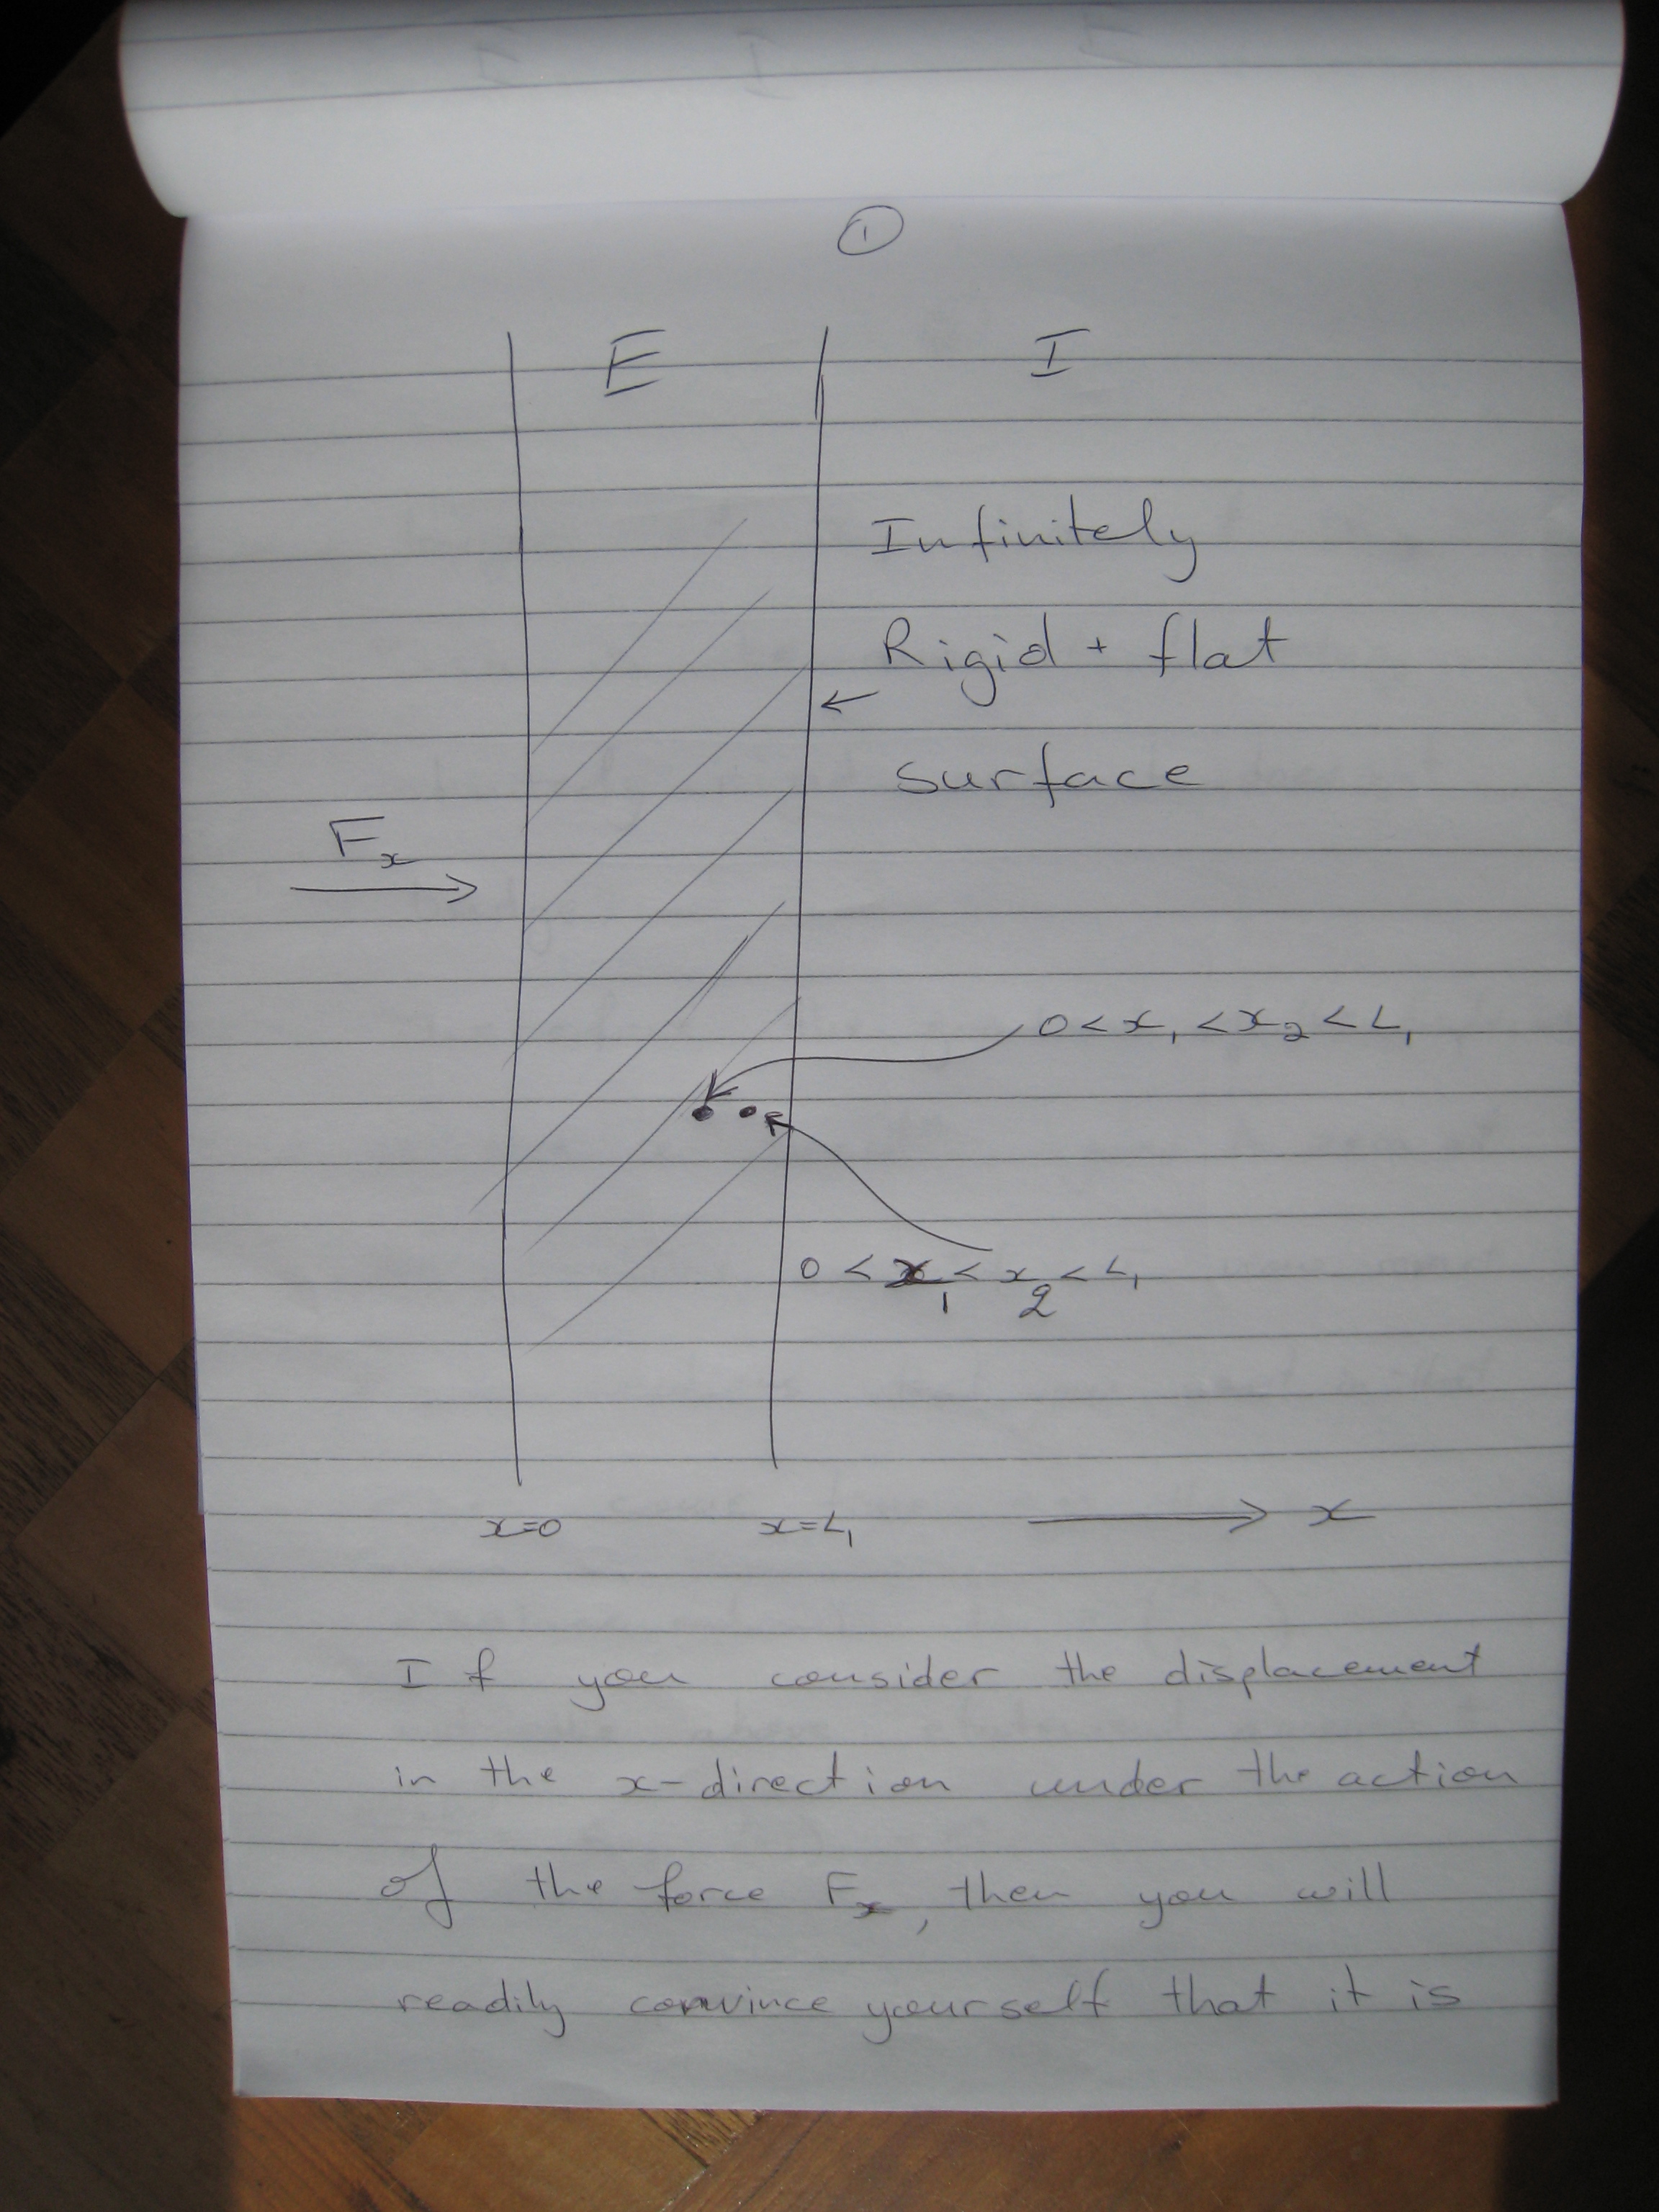 1
E I
Infinitely
Rigid + flat
surface
Fx
0 < x1 < x2 < L1
0 < x1 < x2 < L1
x=0 x=L1 x
If you consider the displacement
in the x-direction under the action
of the force Fx, then you will
readily convince yourself that it is